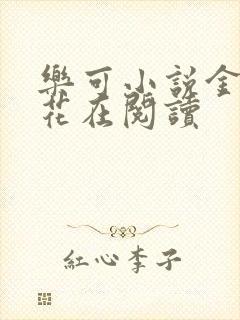 樂可小説金
花在閱讀
紅心李子